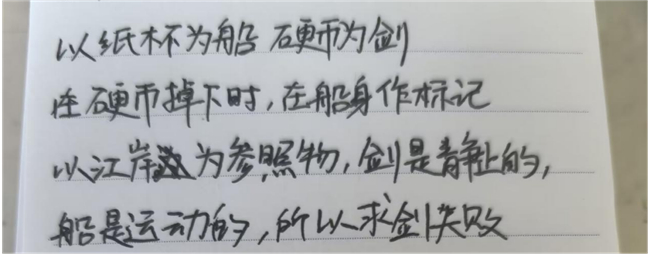 以纸杯为船 硬币为剑
在硬币掉下时,在船身作标记
以江岸为参照物,剑是静止的,
船是运动的,所以求剑失败